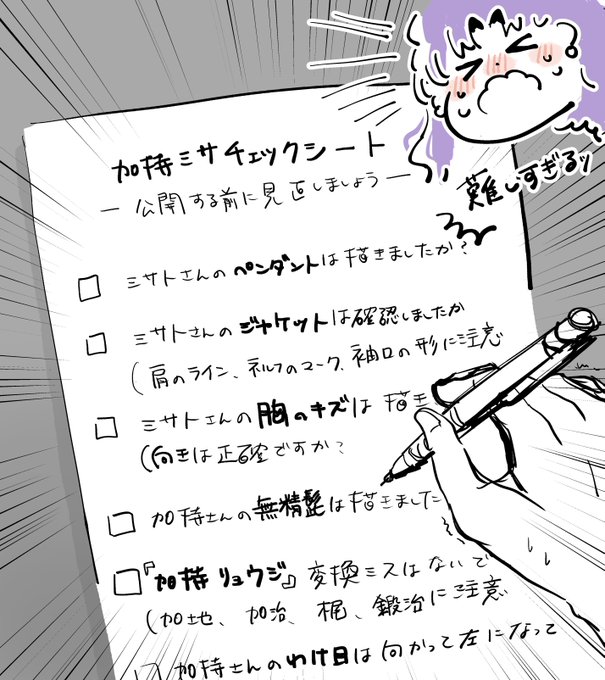 加持ミサチェックシート
― 公開する前に見直しましょう ―
難しすぎるッ
ミサトさんのペンダントは描きましたか?
ミサトさんのジャケットは確認しましたか
(肩のライン、ネルフのマーク、袖口の形に注意
ミサトさんの胸のキズは描き
(向きは正確ですか?
加持さんの無精髭は描きました
『加持リョウジ』変換ミスはないで
(加地、加治、梶、鍛治に注意
加持さんのわけ目は向かって左になって